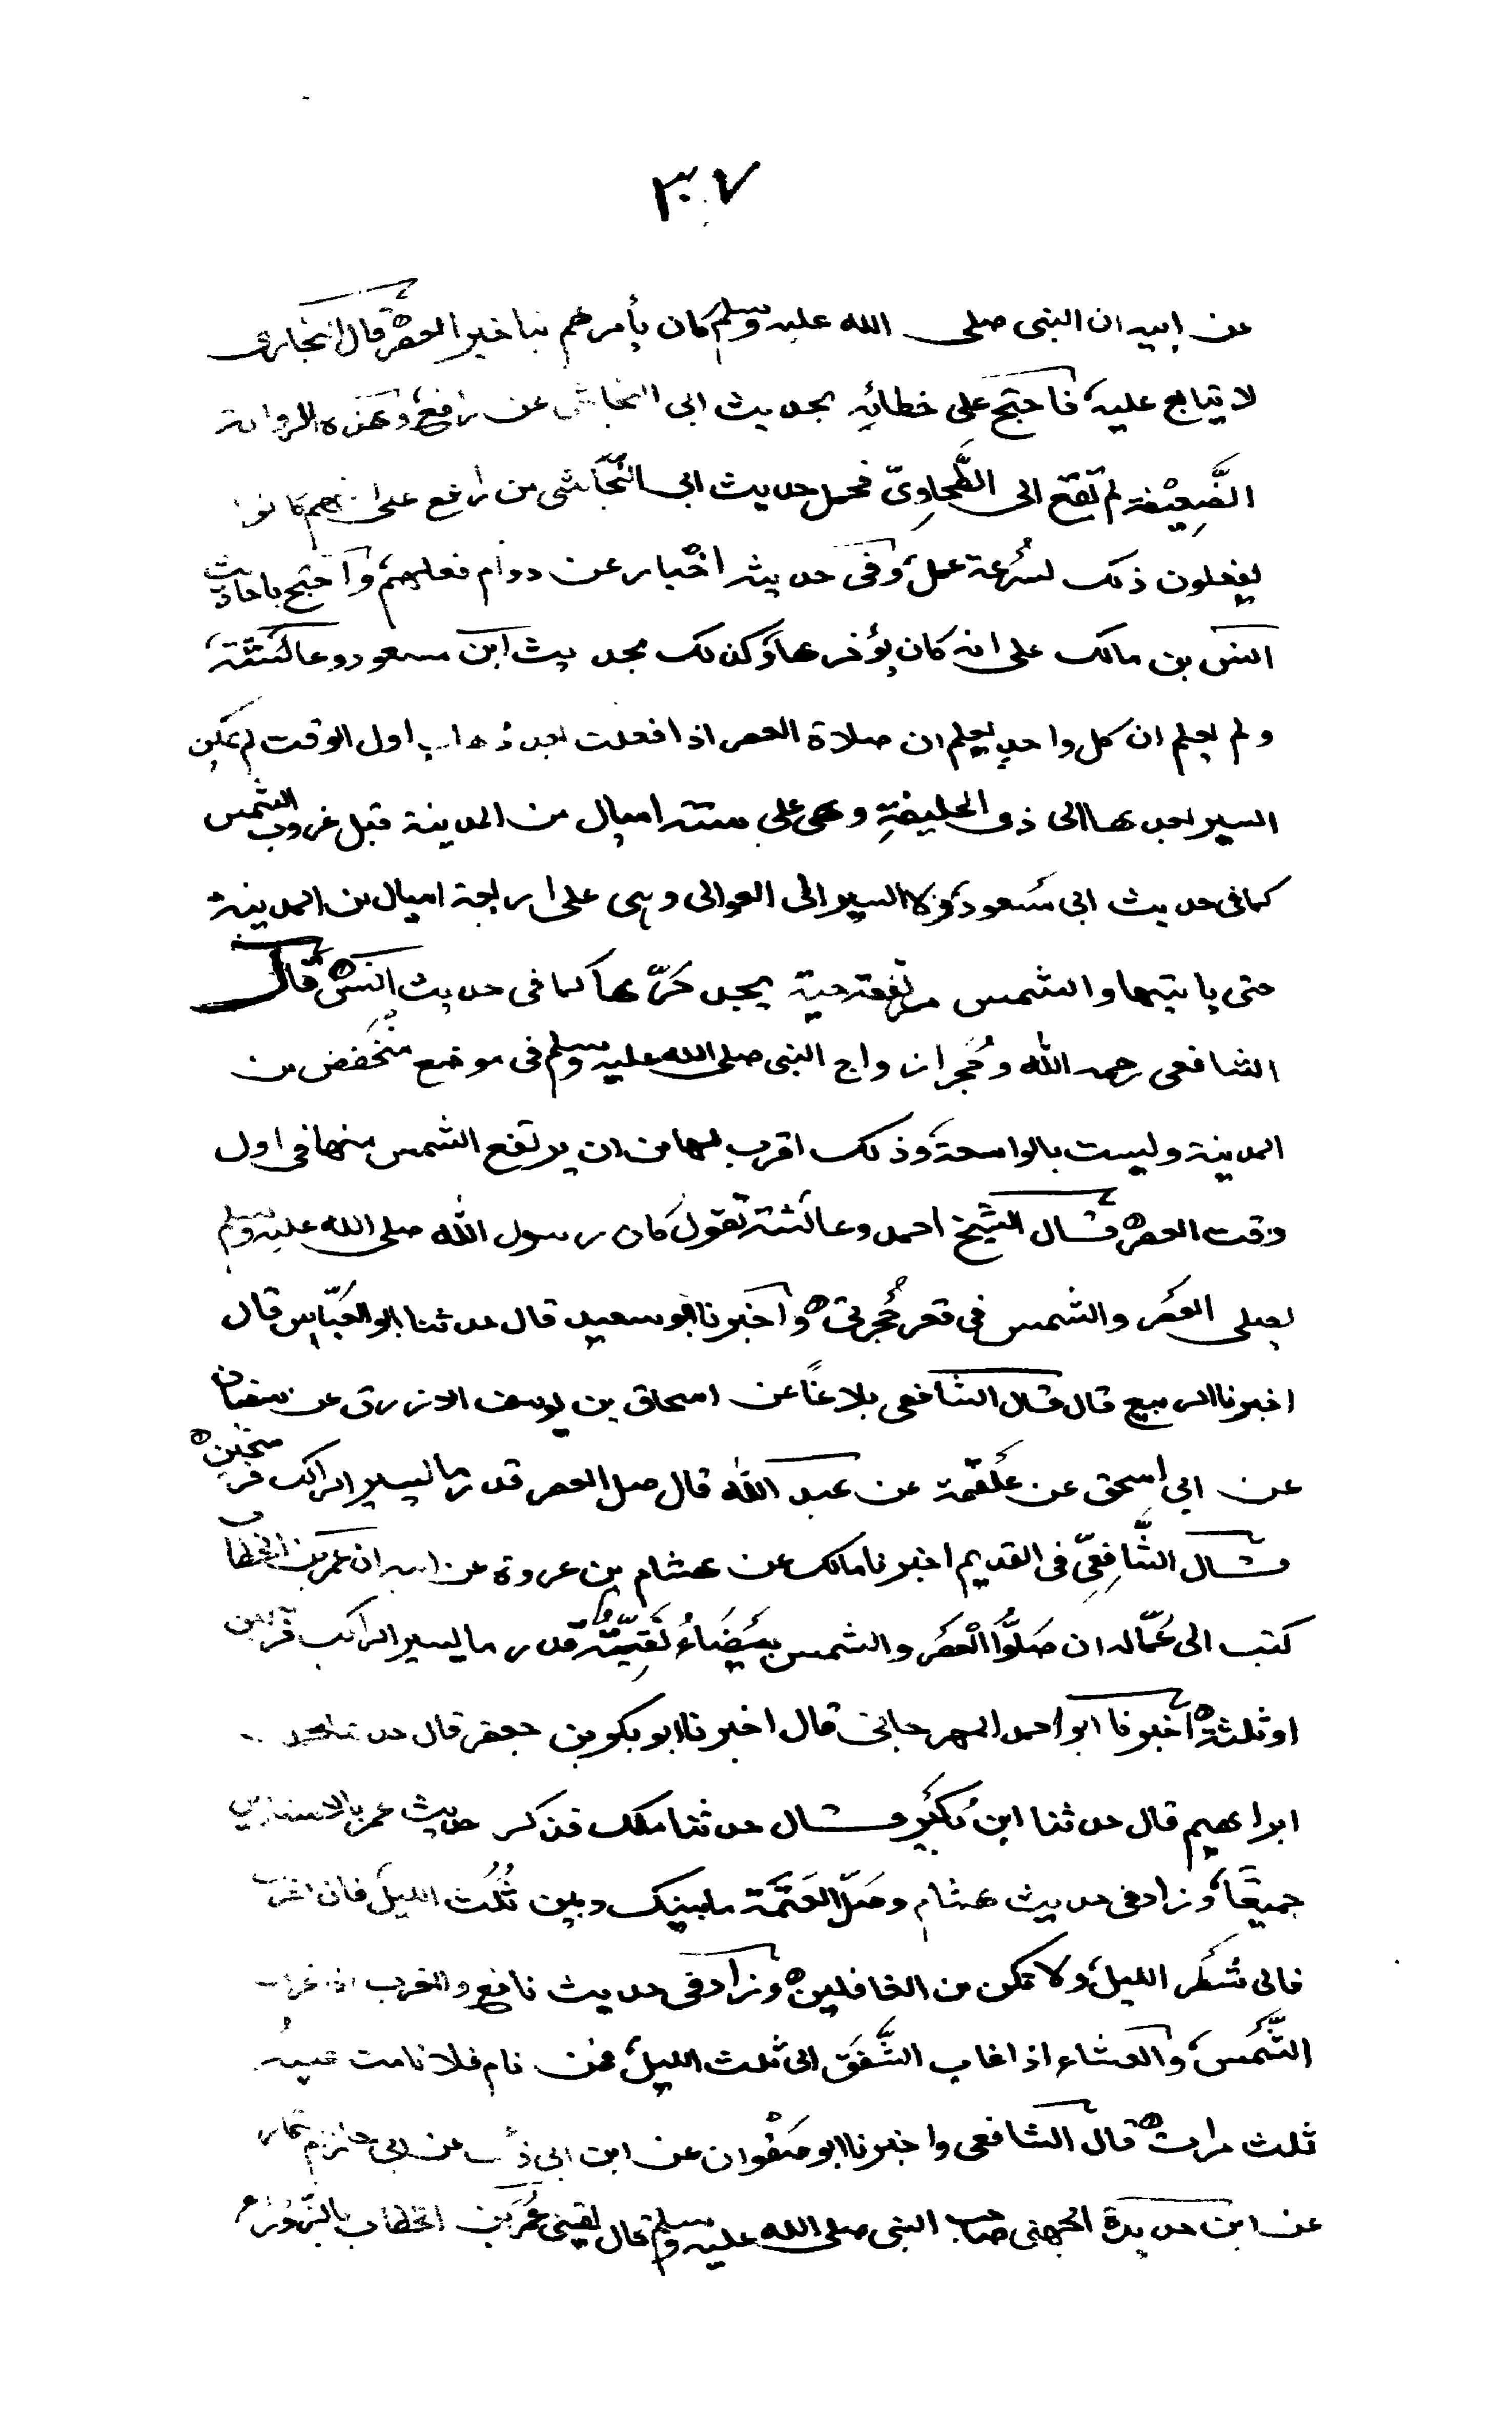 ٣٠٧
عن ابيه ان النبى صلى الله عليه وسلم كان يأمرهم بتاخير العصر قال البخارى
لا يتابع عليه، فاحتج على خطائه بحديث ابى النجاشى عن رافع، وهذه الرواية
الضَّعِيْفة لم تقع الى الطَّحاوِىّ فحمل حديث ابى النَّجَّاشى عن رافع على انهم كانوا
يفعلون ذلك لسُرعة عمل، وفى حديثه اخْبار عن دوام فعلهم، واحتج باحاديث
انس بن مالك على انه كان يؤخرها، وكذلك بحديث ابن مسعود وعائشة،
ولم يعلم ان كل واحد يعلم ان صلاة العصر اذا فعلت بعد ذهاب اول الوقت لم يمكن
السير بعدها الى ذى الحليفةِ وهى على ستة اميال من المدينة قبل غروب الشمس
كما فى حديث ابى مسعود، ولا السير الى العوالى وهى على اربعة اميال من المدينة
حتى ياتيها والشمس مرتفعة حية يجد حَرّها كما فى حديث انس ه قال
الشافعى رحمه الله وحُجر ازواج النبى صلى الله عليه وسلم فى موضع منخفض من
المدينة وليست بالواسعة، وذلك اقرب لها من ان يرتفع الشمس منها فى اول
وقت العصر ه قال الشيخ احمد وعائشة تقول كان رسول الله صلى الله عليه وسلم
يصلى العصر والشمس فى قعر حُجرتى ه واخبرنا ابو سعيد قال حدثنا ابو العَبّاس قال
اخبرنا الربيع قال قال الشافعى بلاغًا عن اسحاق بن يوسف الازرق عن سفيان
عن ابى اسحق عن عَلقَمة عن عبد الله قال صل العصر قدر ما يسير الراكب فرسخين ه
قال الشَّافِعِىّ فى القديم اخبرنا مالك عن هشام بن عروة عن ابيه ان عمر بن الخطاب
كتب الى عُمّاله ان صَلُّوا الْعصَر والشمس بيضَاءُ نَقِيّة قدر ما يسير الراكب فرسخين
او ثلثة ه اخبرنا ابو احمد المهرجانى قال اخبرنا ابو بكر بن جعفر قال حدثنا محمد بن
ابراهيم قال حدثنا ابن بُكَيْر قال حدثنا ملك فذكر حديث عمر بالاسنادين
جميعًا، وزاد فى حديث هشام وصَلِّ العَتَمَة ما بينك وبين ثُلُث الليل، فان اخرت
فالى شَطر الليل، ولا تكن من الغافلين ه وزاد فى حديث نافع والمغرب اذا غربت
الشَّمس، والعشاء اذا غاب الشَّفَق الى ثلث الليل، فمن نام فلا نامت عينه
ثلث مرات ه قال الشافعى واخبرنا ابو صَفْوان عن ابن ابى ذئب عن ابى حازم التمار
عن ابن حديدة الجهنى صاحب النبى صلى الله عليه وسلم قال لقينى عُمَر بن الخطاب بالزَّوْرَاء